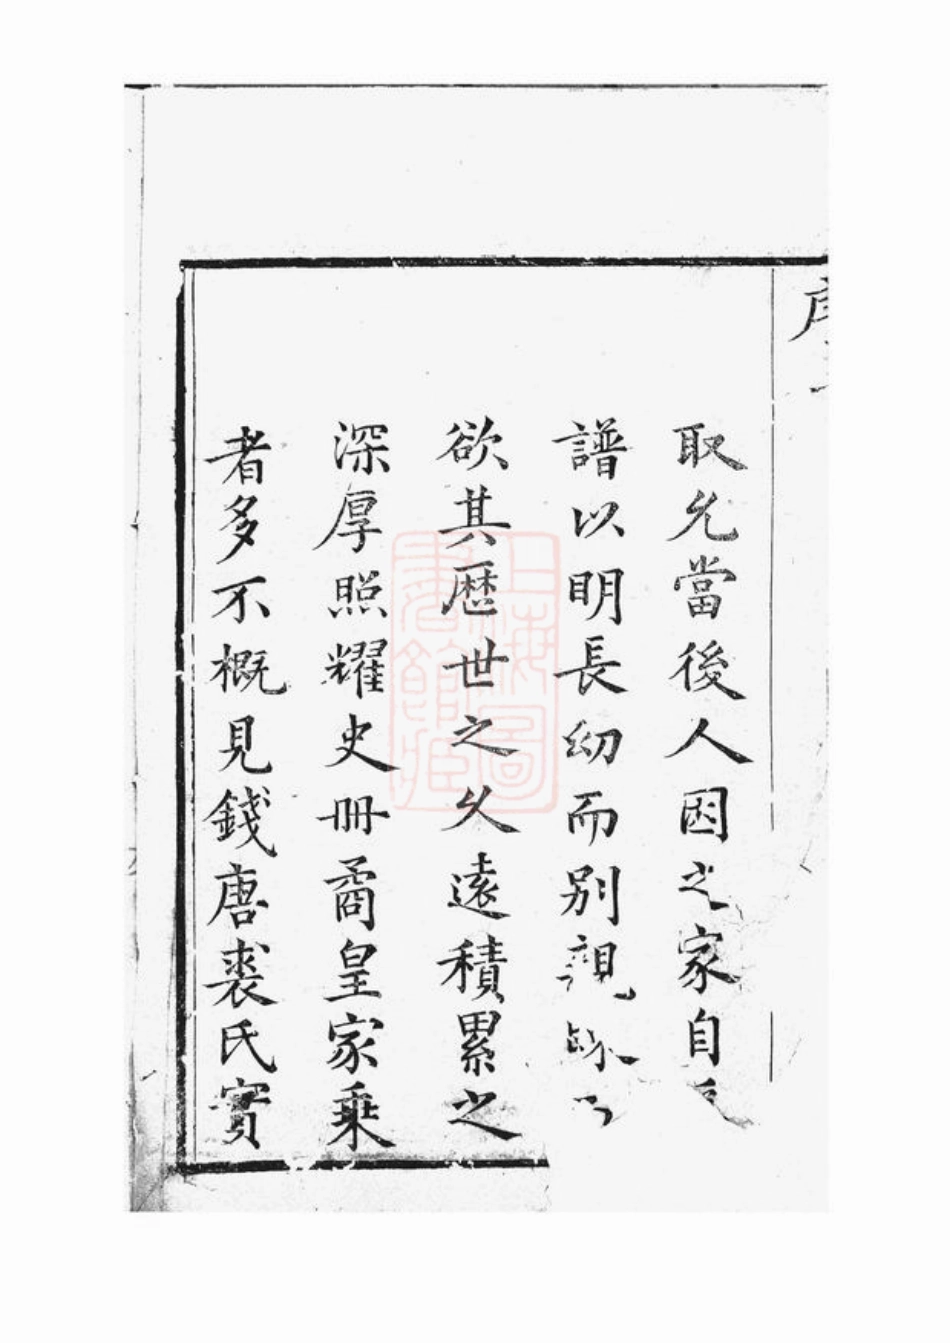 序
取允當後人因之家自
譜以明長幼而別親疎
欲其歷世之久遠積累之
深厚照耀史冊矞皇家乗
者多不概見錢唐裘氏實
上海圖書館藏